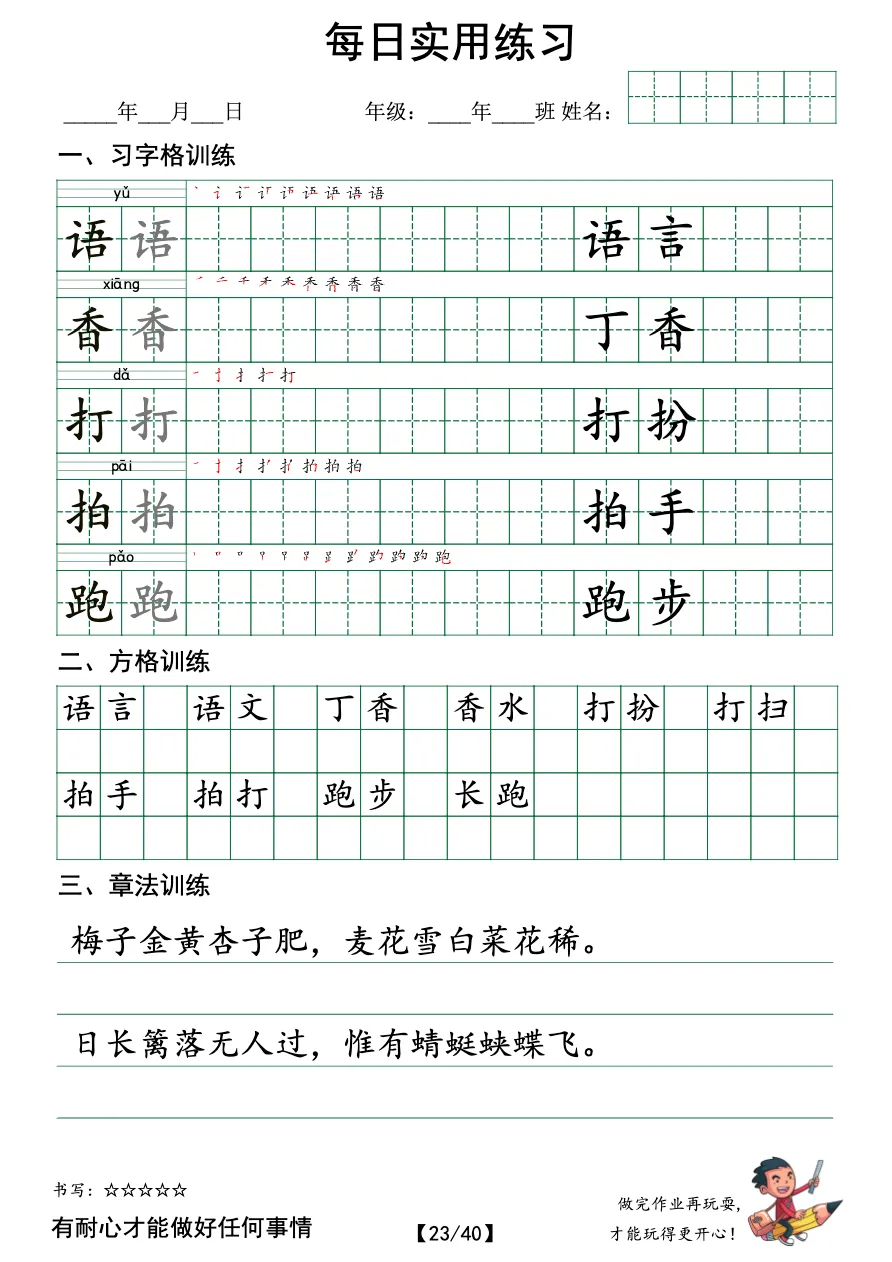 每日实用练习
_____年___月___日 年级：____年____班 姓名：
一、习字格训练
yǔ
语 语 语 言
xiāng
香 香 丁 香
dǎ
打 打 打 扮
pāi
拍 拍 拍 手
pǎo
跑 跑 跑 步
二、方格训练
语言 语文 丁香 香水 打扮 打扫
拍手 拍打 跑步 长跑
三、章法训练
梅子金黄杏子肥，麦花雪白菜花稀。
日长篱落无人过，惟有蜻蜓蛱蝶飞。
书写：☆☆☆☆☆
有耐心才能做好任何事情
【23/40】
做完作业再玩耍，
才能玩得更开心！